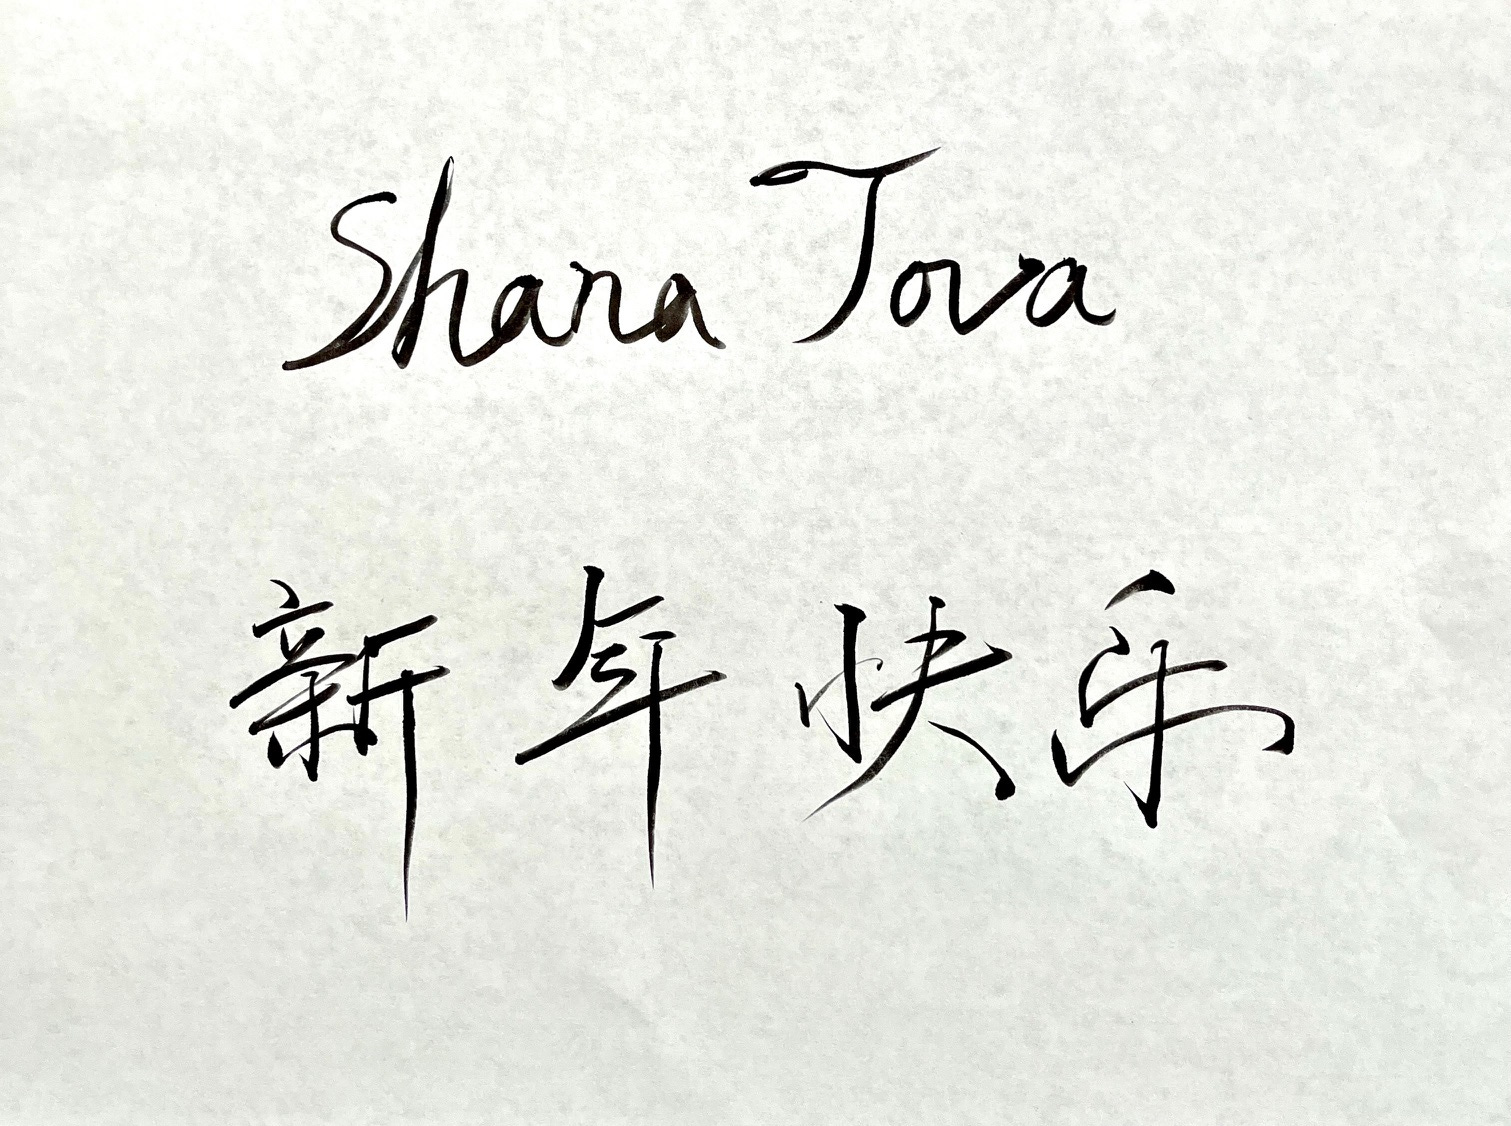 Shana Tova
新年快乐